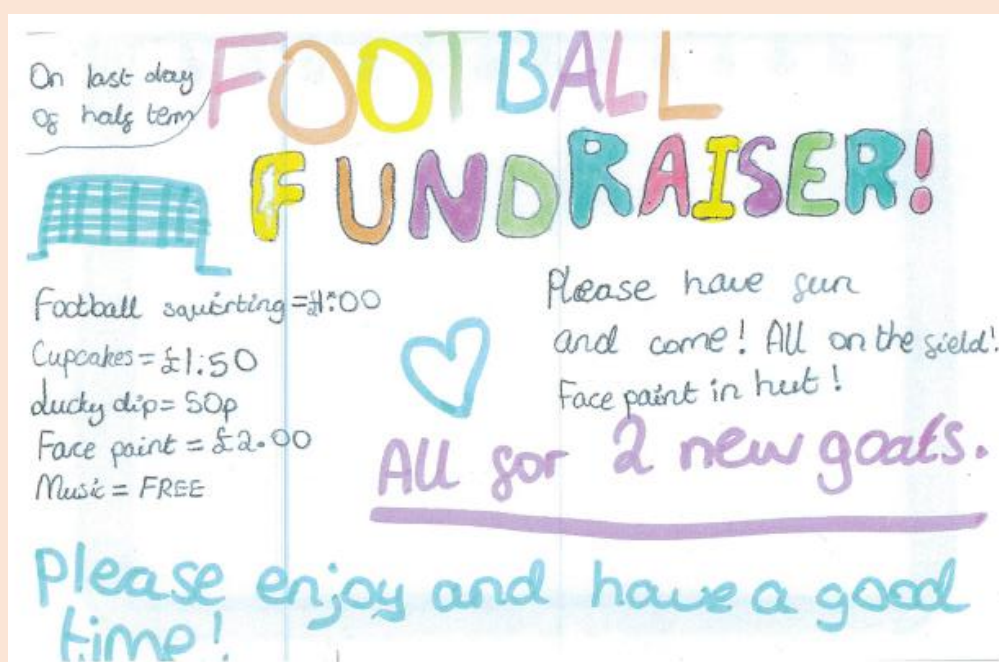 On last day
of half term
FOOTBALL
FUNDRAISER!
Football squirting = £1:00
Cupcakes = £1:50
Lucky dip = 50p
Face paint = £2.00
Music = FREE
Please have fun
and come! All on the field!
Face paint in hut!
All for 2 new goals.
Please enjoy and have a good
time!